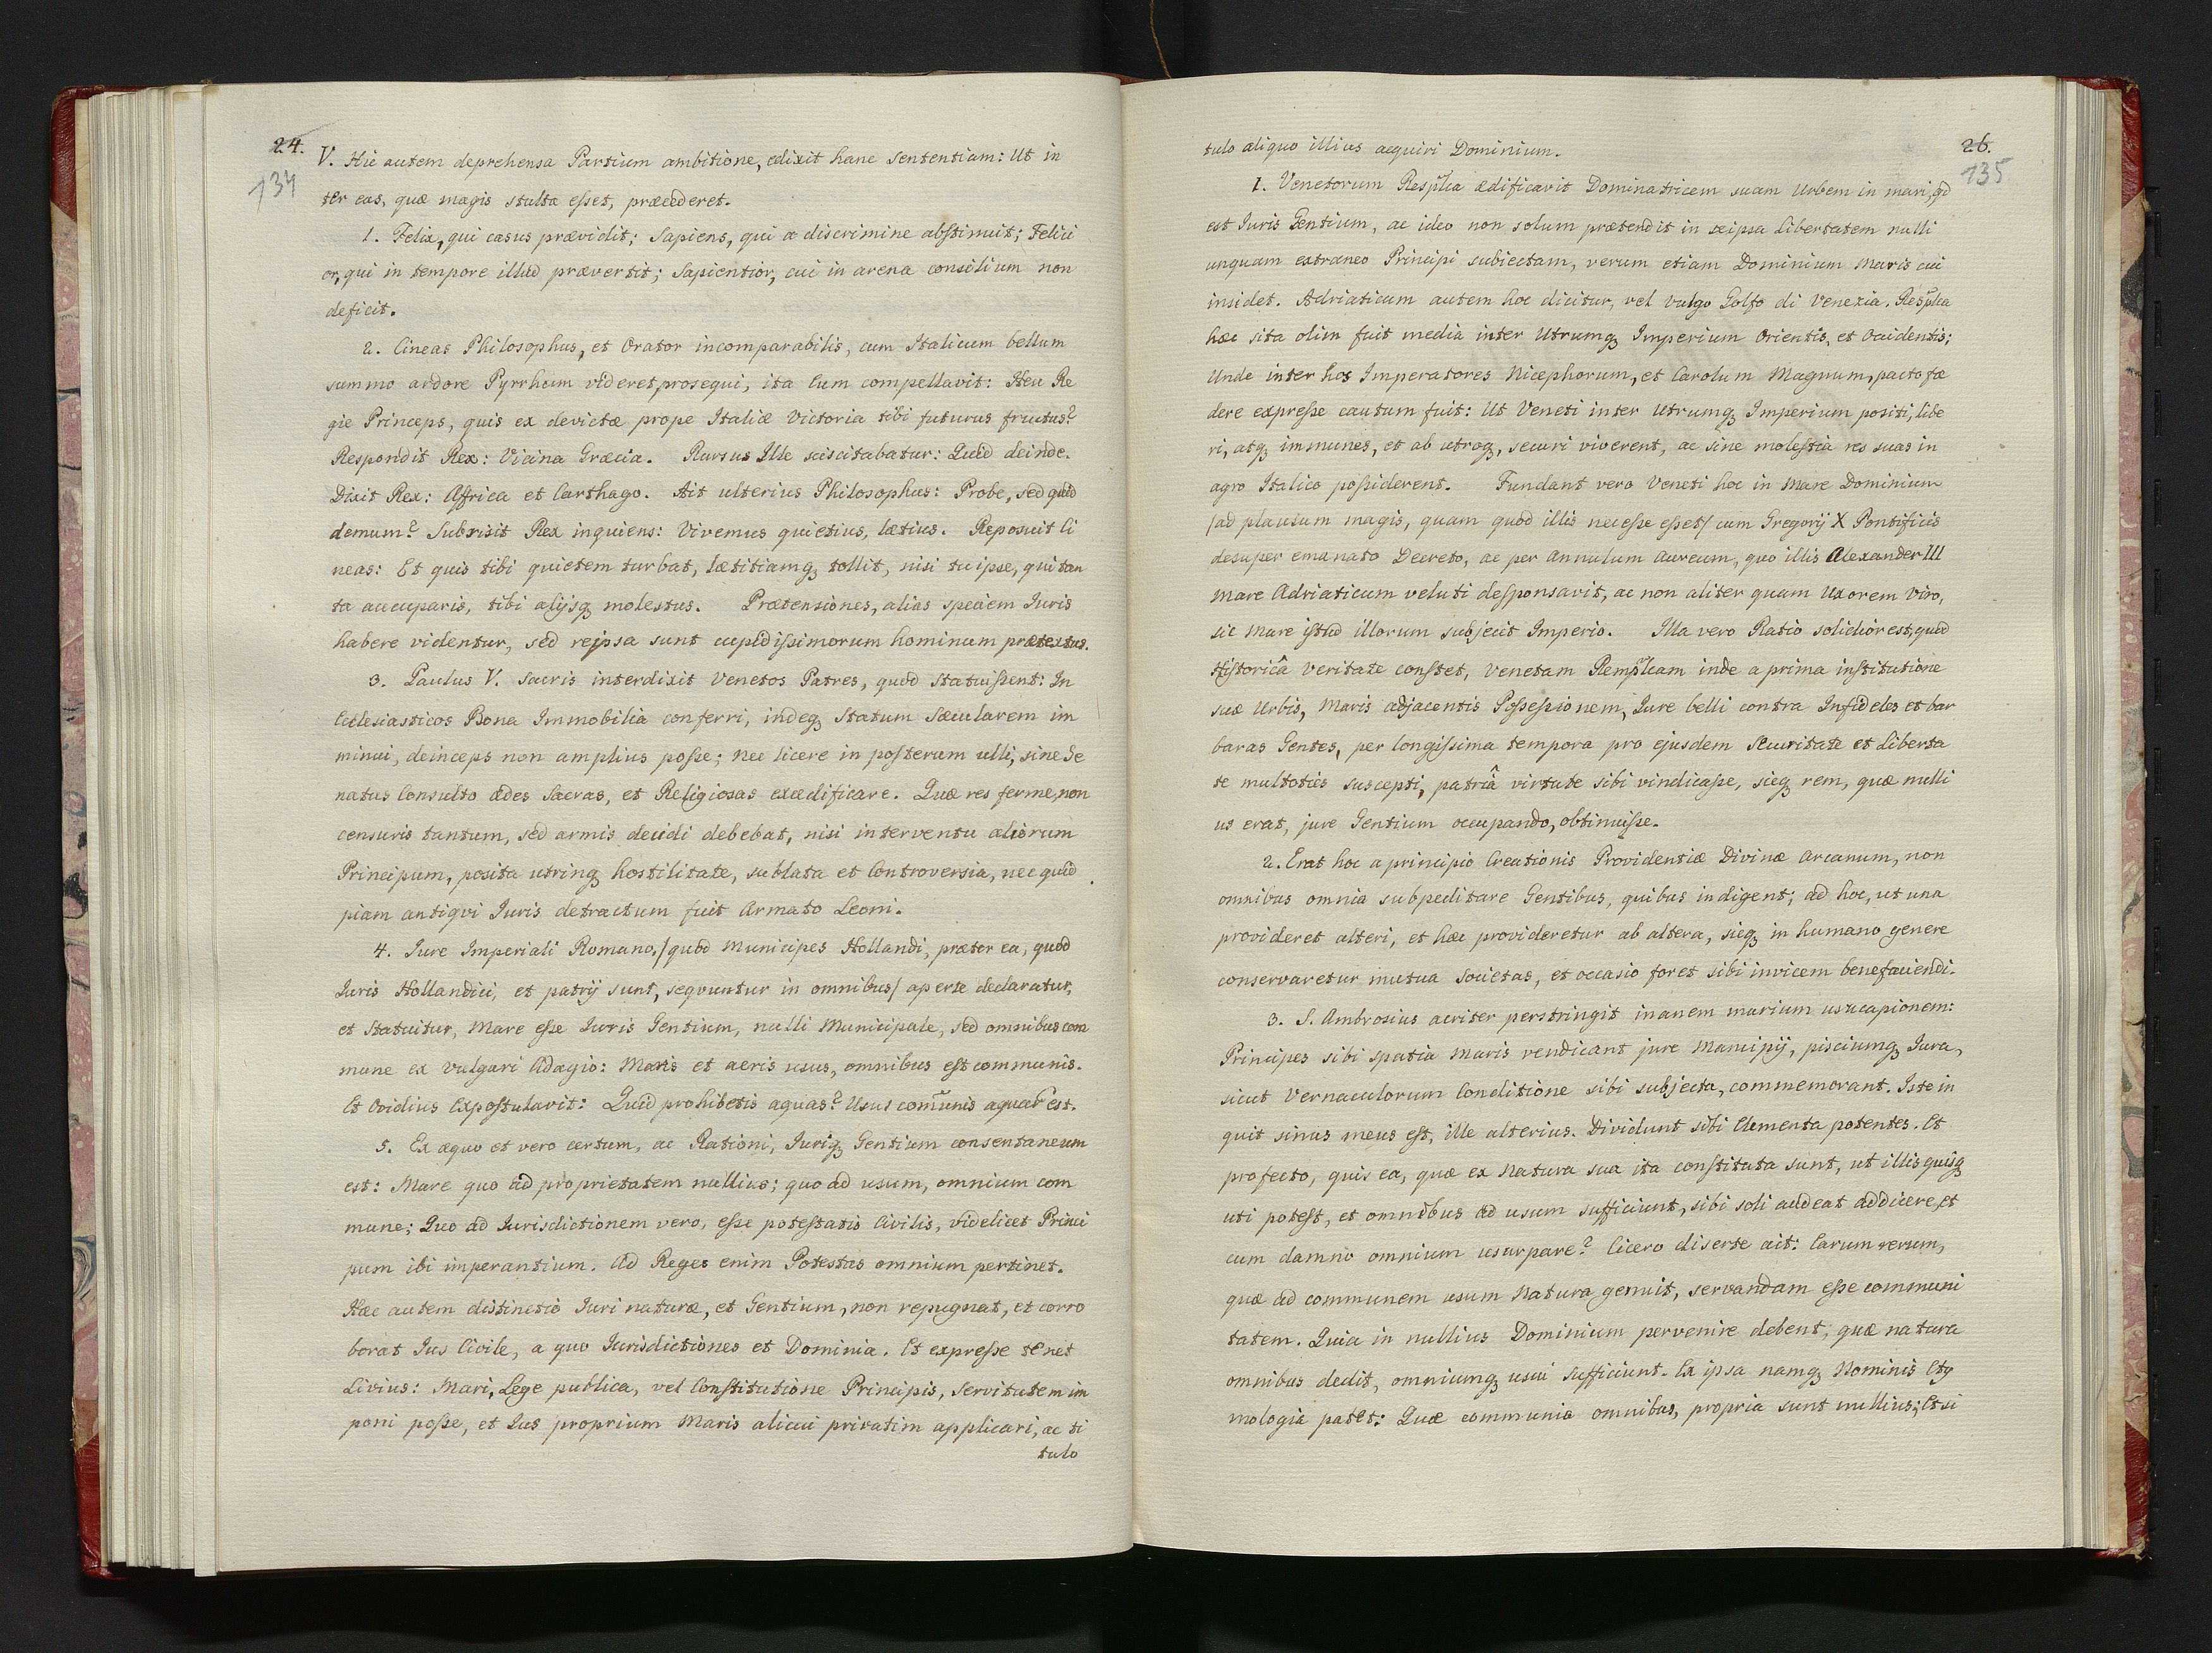 24.
134
V. Hic autem deprehensa Partium ambitione, edixit hanc sententiam: Ut in
ter eas, quæ magis stulta eſset, præcederet.
1. Felix, qui casus prævidit; Sapiens, qui a discrimine abſtinuit; Felici
or, qui in tempore illud prævertit; Sapientior, cui in arena consilium non
deficit.
2. Cineas Philosophus, et Orator incomparabilis, cum Italicum bellum
summo ardore Pyrrhum videret prosequi, ita Eum compellavit: Heu Re
gie Princeps, quis ex devictæ prope Italiæ Victoria tibi futurus fructus?
Respondit Rex: Vicina Græcia. Rursus Ille sciscitabatur: Quid deinde.
Dixit Rex: Affrica et Carthago. Ait ulterius Philosophus: Probe, sed quid
demum? Subrisit Rex inquiens: Vivemus quietius, lætius. Reposuit Ci
neas: Et quis tibi quietem turbat, lætitiamq₃ tollit, nisi tu ipse, qui tan
ta aucuparis, tibi alijsq₃ molestus. Prætensiones, alias speciem Juris
habere videntur, sed reipsa sunt cupidiſsimorum hominum prætextus.
3. Paulus V. Sacris interdixit Venetos Patres, quod Statuiſsent: In
Ecclesiasticos Bona Immobilia conferri, indeq₃ Statum Sæcularem im
minui, deinceps non amplius poſse; nec licere in poſterum ulli, sine Se
natus Consulto ædes Sacras, et Religiosas exædificare. Quæ res ferme, non
censuris tantum, sed armis decidi debebat, nisi interventu aliorum
Principum, posita utrinq₃ hostilitate, sublata et Controversia, nec quid
piam antiqvi Juris detractum fuit Armato Leoni.
4. Jure Imperiali Romano, /quod Municipes Hollandi, præter ea, quod
Juris Hollandici, et patrij sunt, seqvuntur in omnibus/ aperte declaratur,
et Statuitur, Mare eſse Juris Gentium, nulli Municipale, sed omnibus com
mune ex vulgari Adagio: Maris et aeris usus, omnibus eſt communis.
Et Ovidius Expoſtulavit: Quid prohibetis aquas? Usus com̃unis aquar̃ est.
5. Ex æquo et vero certum, ac Rationi, Juriq₃ Gentium consentaneum
est: Mare quo ad proprietatem nullius; quo ad usum, omnium com
mune; Quo ad Jurisdictionem vero, eſse poteſtatis Civilis, videlicet Princi
pum ibi imperantium. Ad Reges enim Potestas omnium pertinet.
Hæc autem distinctio Juri naturæ, et Gentium, non repugnat, et corro
borat Jus Civile, a quo Jurisdictiones et Dominia. Et expreſse tenet
Livius: Mari, Lege publica, vel Conſtitutione Principis, Servitutem im
poni poſse, et Jus proprium Maris alicui privatim applicari, ac ti
tulo
26.
135
tulo aliquo illius acquiri Dominium.
1. Venetorum Resp̃lca ædificavit Dominatricem suam Urbem in mari, qd
est Juris Gentium, ac ideo non solum prætendit in seipsa Libertatem nulli
unquam extraneo Principi subiectam, verum etiam Dominium Maris cui
insidet. Adriaticum autem hoc dicitur, vel vulgo Golfo di Venezia. Resp̃lca
hæc sita olim fuit media inter Utrumq₃ Imperium Orientis, et Occidentis;
Unde inter hos Imperatores Nicephorum, et Carolum Magnum, pacto fæ
dere expreſse cautum fuit: Ut Veneti inter Utrumq₃ Imperium positi, libe
ri, atq₃ immunes, et ab utroq₃, securi viverent, ac sine moleſtia res suas in
agro Italico poſsiderent. Fundant vero Veneti hoc in Mare Dominium
/ad plausum magis, quam quod illis neceſse eſset/ cum Gregorij X Pontificis
desuper emanato Decreto, ac per Annulum Aureum, quo illis Alexander III
Mare Adriaticum veluti deſponsavit, ac non aliter quam Uxorem Viro,
sic Mare iſtud illorum subjecit Imperio. Illa vero Ratio solidior est, quod
Hiſtoricâ Veritate conſtet, Venetam Remp̃lcam inde a prima inſtitutione
suæ Urbis, Maris adjacentis Poſseſsionem, Jure belli contra Infideles et bar
baras Gentes, per longiſsima tempora pro ejusdem Securitate et Liberta
te multoties suscepti, patriâ virtute sibi vindicaſse, sicq₃ rem, quæ nulli
us erat, jure Gentium occupando, obtinuiſse.
2. Erat hoc a principio Creationis Providentiæ Divinæ Arcanum, non
omnibus omnia subpeditare Gentibus, quibus indigent; ad hoc, ut una
provideret alteri, et hæc provideretur ab altera, sicq₃ in humano genere
conservaretur mutua Societas, et occasio foret sibi invicem benefaciendi.
3. S. Ambrosius acriter perstringit inanem marium usucapionem:
Principes sibi spatia Maris vendicant jure Mancipij, pisciumq₃ Jura,
sicut Vernaculorum Conditione sibi subjecta, commemorant. Iste in
quit sinus meus eſt, ille alterius. Dividunt sibi Elementa potentes. Et
profecto, quis ea, quæ ex Natura sua ita conſtituta sunt, ut illis quisq₃
uti poteſt, et omnibus ad usum sufficiunt, sibi soli audeat addicere, et
cum damno omnium usurpare? Cicero diserte ait: Earum rerum,
quæ ad communem usum Natura genuit, servandam eſse communi
tatem. Quia in nullius Dominium pervenire debent, quæ natura
omnibus dedit, omniumq₃ usui sufficiunt. Ex ipsa namq₃ Nominis Ety
mologia patet: Quæ communia omnibus, propria sunt nullius; Etsi